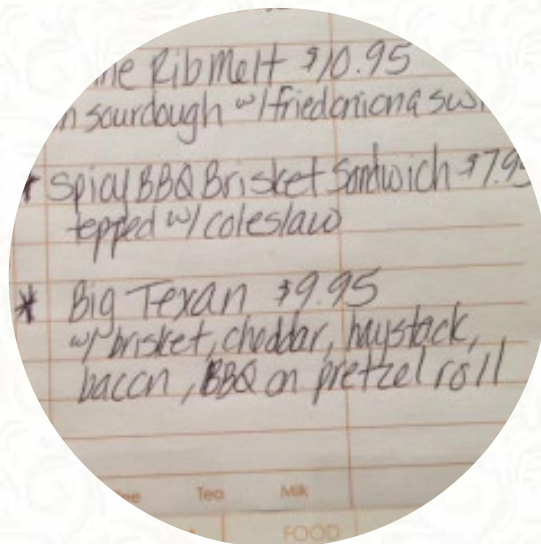 Rib Melt $10.95
sourdough w/ fried onion &
* Spicy BBQ Brisket Sandwich $7.95
topped w/ coleslaw
* Big Texan $9.95
w/ brisket, cheddar, haystack,
bacon, BBQ on pretzel roll
Tea Milk
FOOD